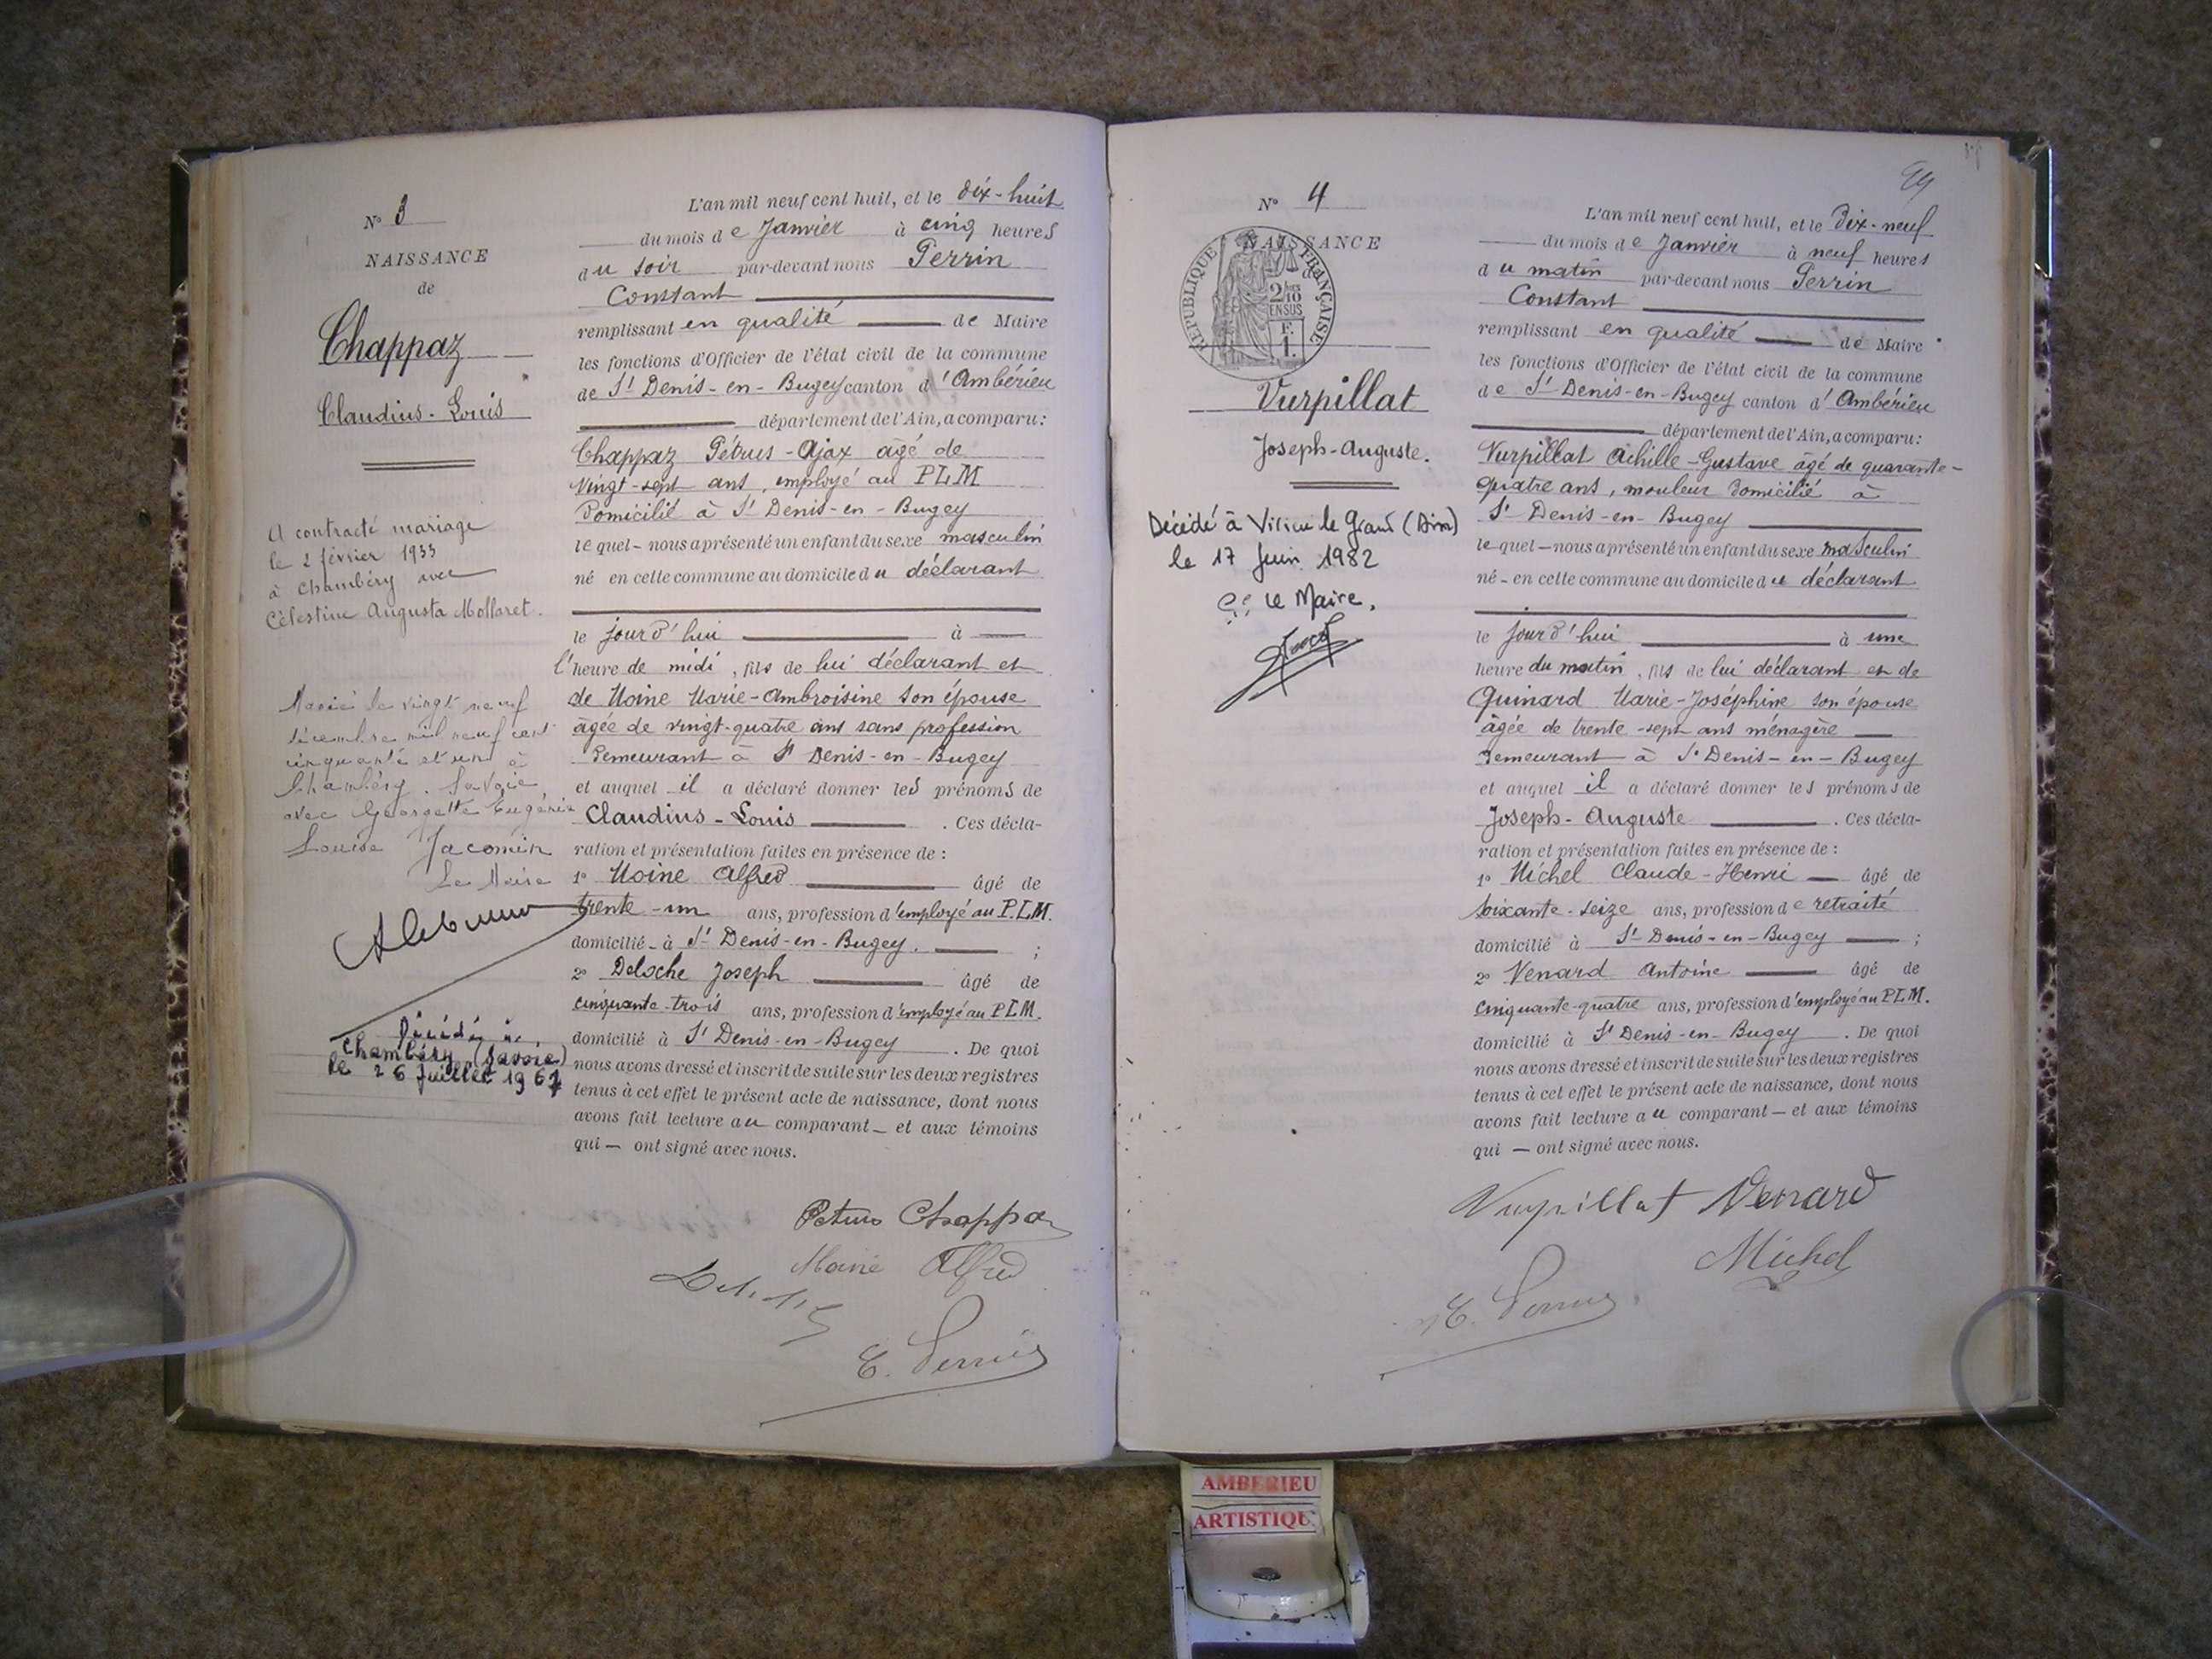 N° 3
NAISSANCE
de
Chappaz
Claudius-Louis
A contracté mariage
le 2 février 1933
à Chambéry avec
Célestine Augusta Mollaret.
Marié le vingt neuf
décembre mil neuf cent
cinquante et un à
Chambéry. Savoie
avec Georgette Eugénie
Louise Jacomin
Le Maire
Décédé à
Chambéry (Savoie)
le 26 Juillet 1967
L'an mil neuf cent huit, et le dix-huit
du mois de Janvier à cinq heures
du soir par-devant nous Perrin
Constant
remplissant en qualité de Maire
les fonctions d'Officier de l'état civil de la commune
de St Denis-en-Bugey canton d'Ambérieu
département de l'Ain, a comparu:
Chappaz Pétrus-Ajax âgé de
vingt-sept ans, employé au PLM
domicilié à St Denis-en-Bugey
lequel - nous a présenté un enfant du sexe masculin
né en cette commune au domicile du déclarant
le jourd'hui à
l'heure de midi, fils de lui déclarant et
de Moine Marie-Ambroisine son épouse
âgée de vingt-quatre ans sans profession
demeurant à St Denis-en-Bugey
et auquel il a déclaré donner les prénoms de
Claudius-Louis . Ces décla-
ration et présentation faites en présence de :
1° Moine Alfred âgé de
trente-un ans, profession d'employé au P.L.M.
domicilié - à St Denis-en-Bugey. ;
2° Deloche Joseph âgé de
cinquante-trois ans, profession d'employé au PLM.
domicilié à St Denis-en-Bugey . De quoi
nous avons dressé et inscrit de suite sur les deux registres
tenus à cet effet le présent acte de naissance, dont nous
avons fait lecture au comparant - et aux témoins
qui - ont signé avec nous.
Petrus Chappaz
Moine Alfred
C. Perrin
N° 4
NAISSANCE
de
RÉPUBLIQUE FRANÇAISE
2/10
EN SUS
F.
1.
Vurpillat
Joseph-Auguste.
Décédé à Virieu le Grand (Ain)
le 17 Juin 1982
Le Maire,
99
L'an mil neuf cent huit, et le Dix-neuf
du mois de Janvier à neuf heures
du matin par-devant nous Perrin
Constant
remplissant en qualité de Maire
les fonctions d'Officier de l'état civil de la commune
de St Denis-en-Bugey canton d'Ambérieu
département de l'Ain, a comparu:
Vurpillat Achille-Gustave âgé de quarante-
quatre ans, mouleur domicilié à
St Denis-en-Bugey
lequel - nous a présenté un enfant du sexe masculin
né - en cette commune au domicile du déclarant
le jourd'hui à une
heure du matin, fils de lui déclarant et de
Guinard Marie-Joséphine son épouse
âgée de trente-sept ans ménagère
demeurant à St Denis-en-Bugey
et auquel il a déclaré donner les prénoms de
Joseph-Auguste . Ces décla-
ration et présentation faites en présence de :
1° Michel Claude-Henri âgé de
soixante-seize ans, profession de retraité
domicilié à St Denis-en-Bugey ;
2° Venard Antoine âgé de
cinquante-quatre ans, profession d'employé au PLM.
domicilié à St Denis-en-Bugey . De quoi
nous avons dressé et inscrit de suite sur les deux registres
tenus à cet effet le présent acte de naissance, dont nous
avons fait lecture au comparant - et aux témoins
qui - ont signé avec nous.
Vurpillat Venard
Michel
C. Perrin
AMBERIEU
ARTISTIQUE